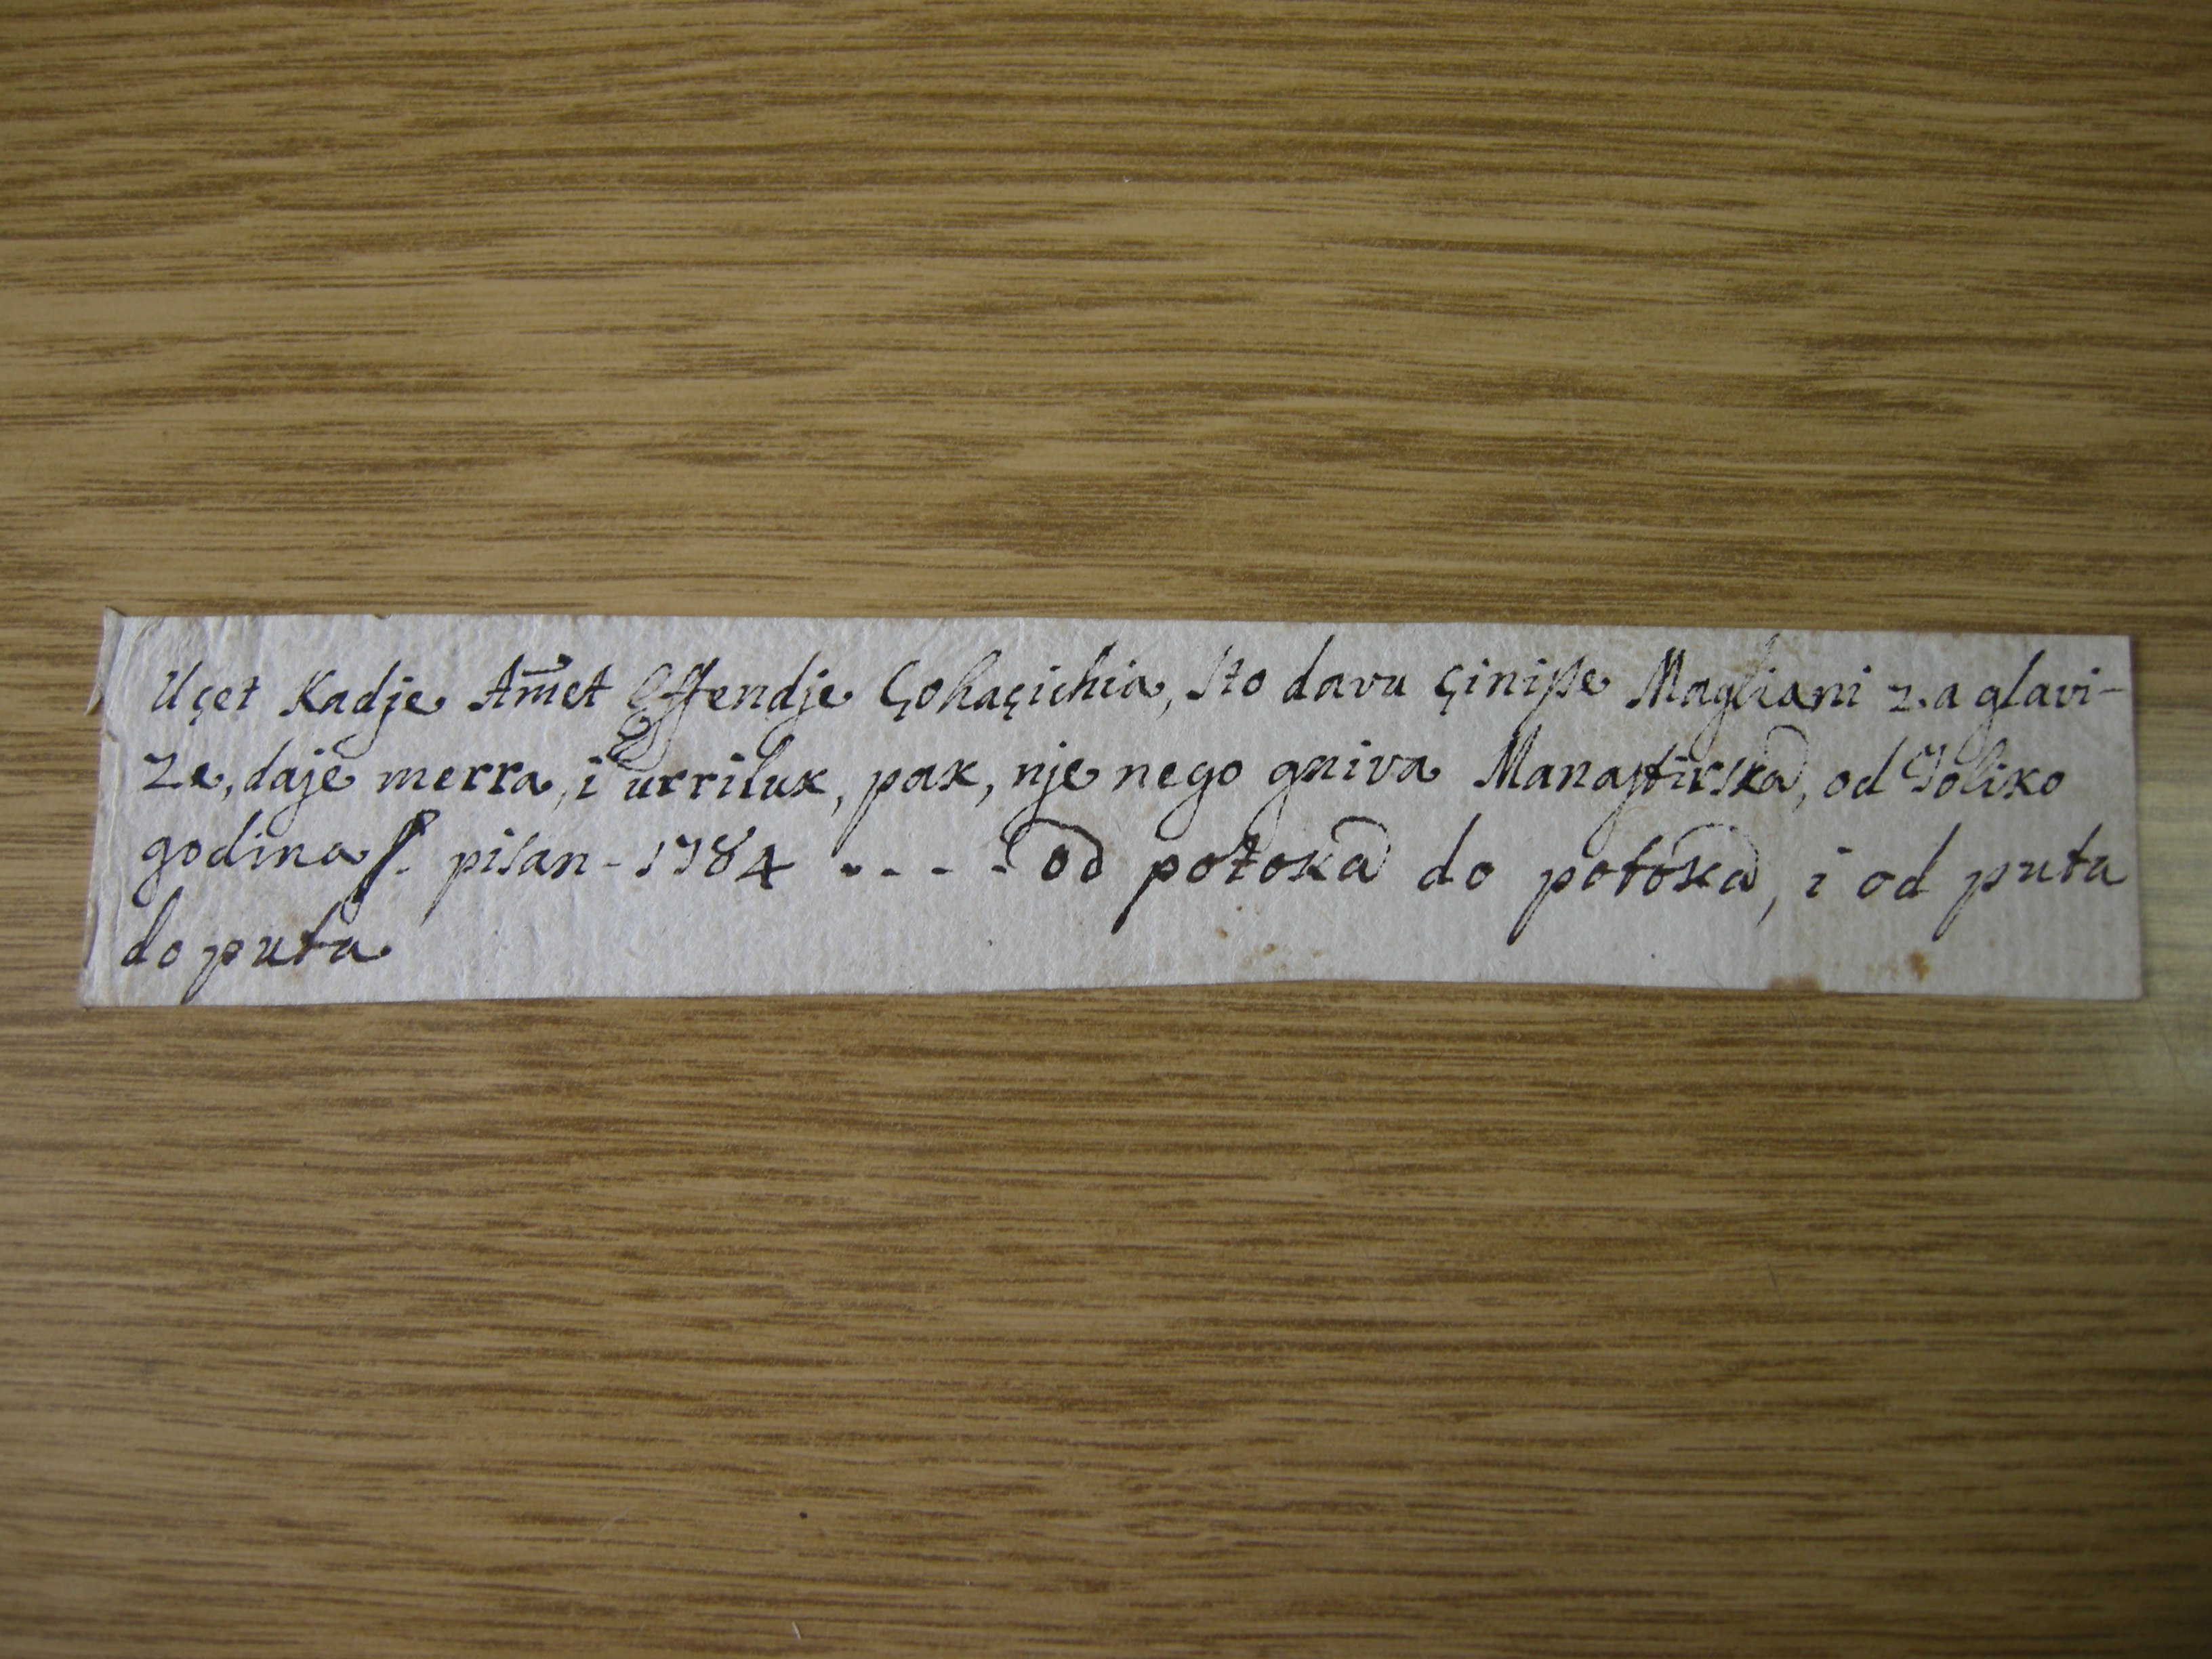 Uçet Kadje Am̄et Effendje Çohaçichia, sto davu çinisse Magliani za glavi-
ze, daje merra, i urriluk, pak, nje nego gniva Manastirska, od Toliko
godina/. pisan - 1784 - - - - od potoka do potoka, i od puta
do puta